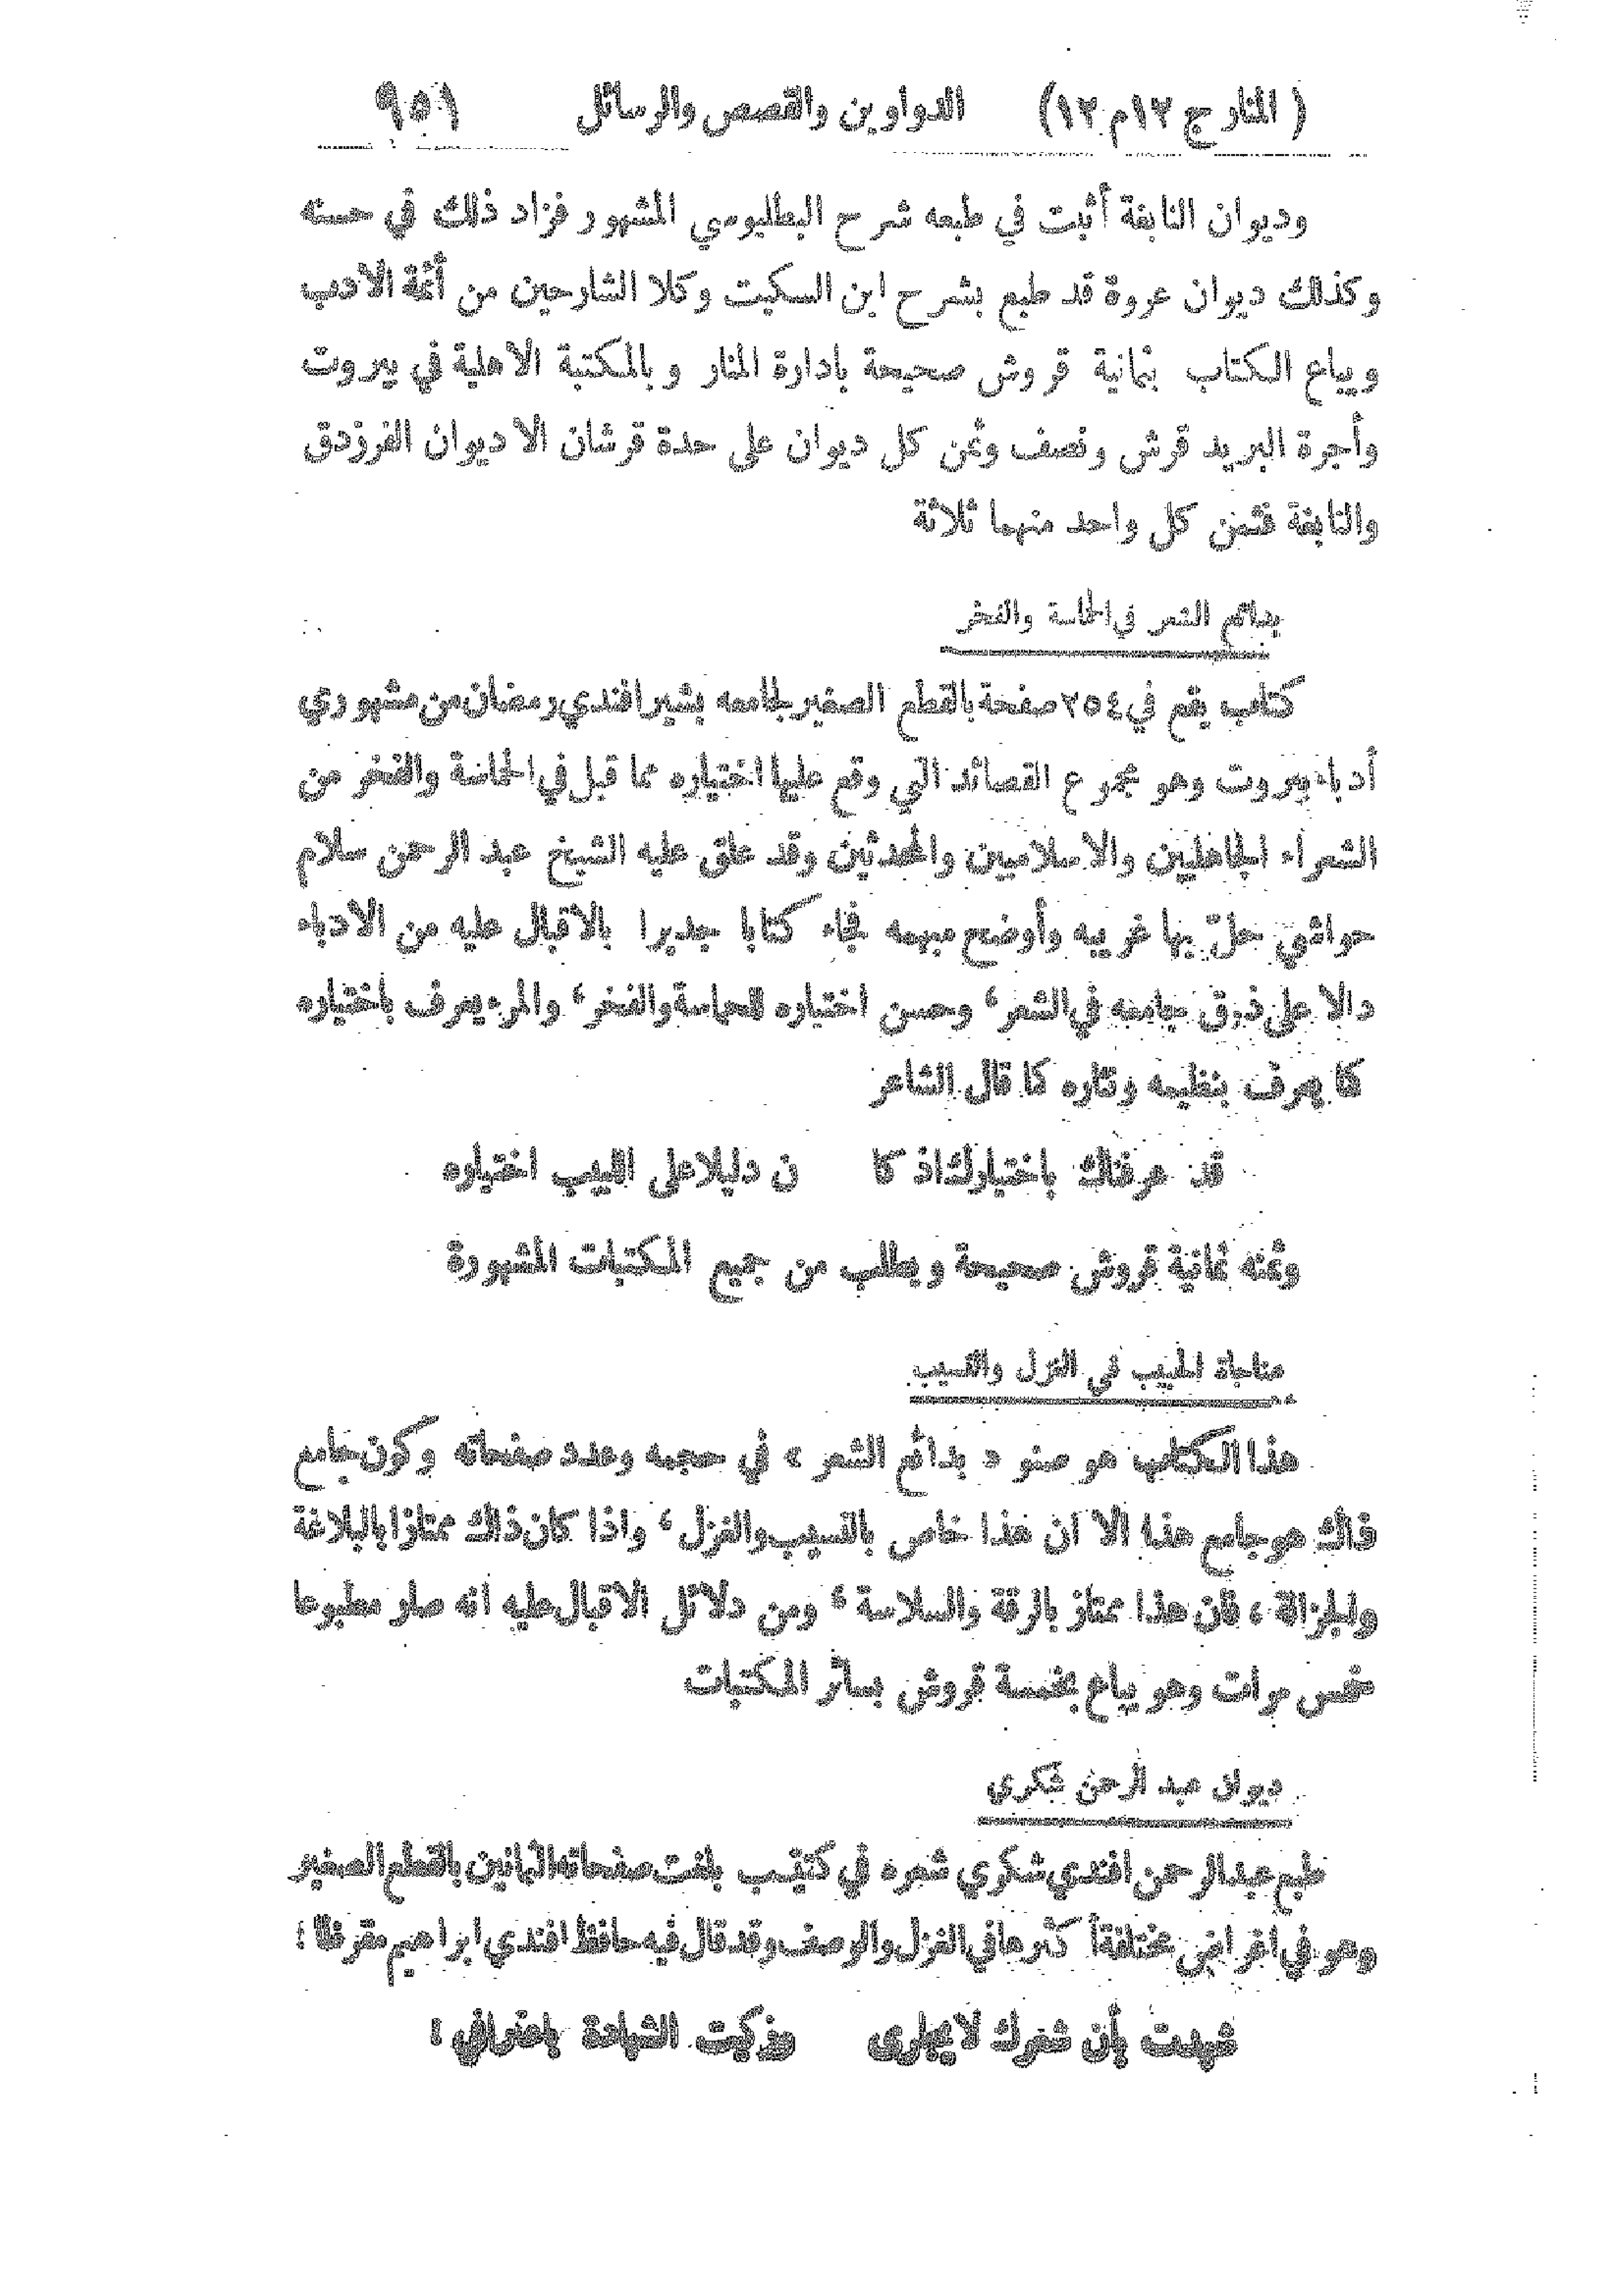 ( المنار ج ١٢ م ١٢) الدواوين والقصص والرسائل ٩٥١
وديوان النابغة أثبت في طبعه شرح البطليوسي المشهور فزاد ذلك في حسنه
وكذلك ديوان عروة قد طبع بشرح ابن السكيت وكلا الشارحين من أئمة الادب
ويباع الكتاب بثمانية قروش صحيحة بادارة المنار وبالمكتبة الاهلية في بيروت
وأجرة البريد قرش ونصف وثمن كل ديوان على حدة قرشان الا ديوان الفرزدق
والنابغة فثمن كل واحد منهما ثلاثة
بدائع الشعر في الحماسة والفخر
كتاب يقع في ٢٥٤ صفحة بالقطع الصغير لجامعه بشير افندي رمضان من مشهوري
أدباء بيروت وهو مجموع القصائد التي وقع عليها اختياره مما قيل في الحماسة والفخر من
الشعراء الجاهليين والاسلاميين والمحدثين وقد علق عليه الشيخ عبد الرحمن سلام
حواشي حلّ بها غريبه وأوضح مبهمه فجاء كتابا جديرا بالاقبال عليه من الادباء
دالا على ذوق جامعه في الشعر، وحسن اختياره للحماسة والفخر، والمرء يعرف باختياره
كما يعرف بنظيمه ونثاره كما قال الشاعر
قد عرفناك باختيارك اذ كا ن دليلا على اللبيب اختياره
وثمنه ثمانية قروش صحيحة ويطلب من جميع المكتبات المشهورة
مناجاة الحبيب في الغزل والنسيب
هذا الكتاب هو صنو « بدائع الشعر » في حجمه وعدد صفحاته وكون جامع
ذاك هو جامع هذا الا ان هذا خاص بالنسيب والغزل، واذا كان ذاك ممتازا بالبلاغة
والجزالة، فان هذا ممتاز بالرقة والسلاسة، ومن دلائل الاقبال عليه انه صار مطبوعا
خمس مرات وهو يباع بخمسة قروش بسائر المكتبات
ديوان عبد الرحمن شكري
طبع عبد الرحمن افندي شكري شعره في كتيّب بلغت صفحاته الثمانين بالقطع الصغير
وهو في اغراض مختلفة أكثرها في الغزل والوصف وقد قال فيه حافظ افندي ابراهيم مقرظا :
شهدت بأن شعرك لا يجارى وزكيت الشهادة باعترافي :